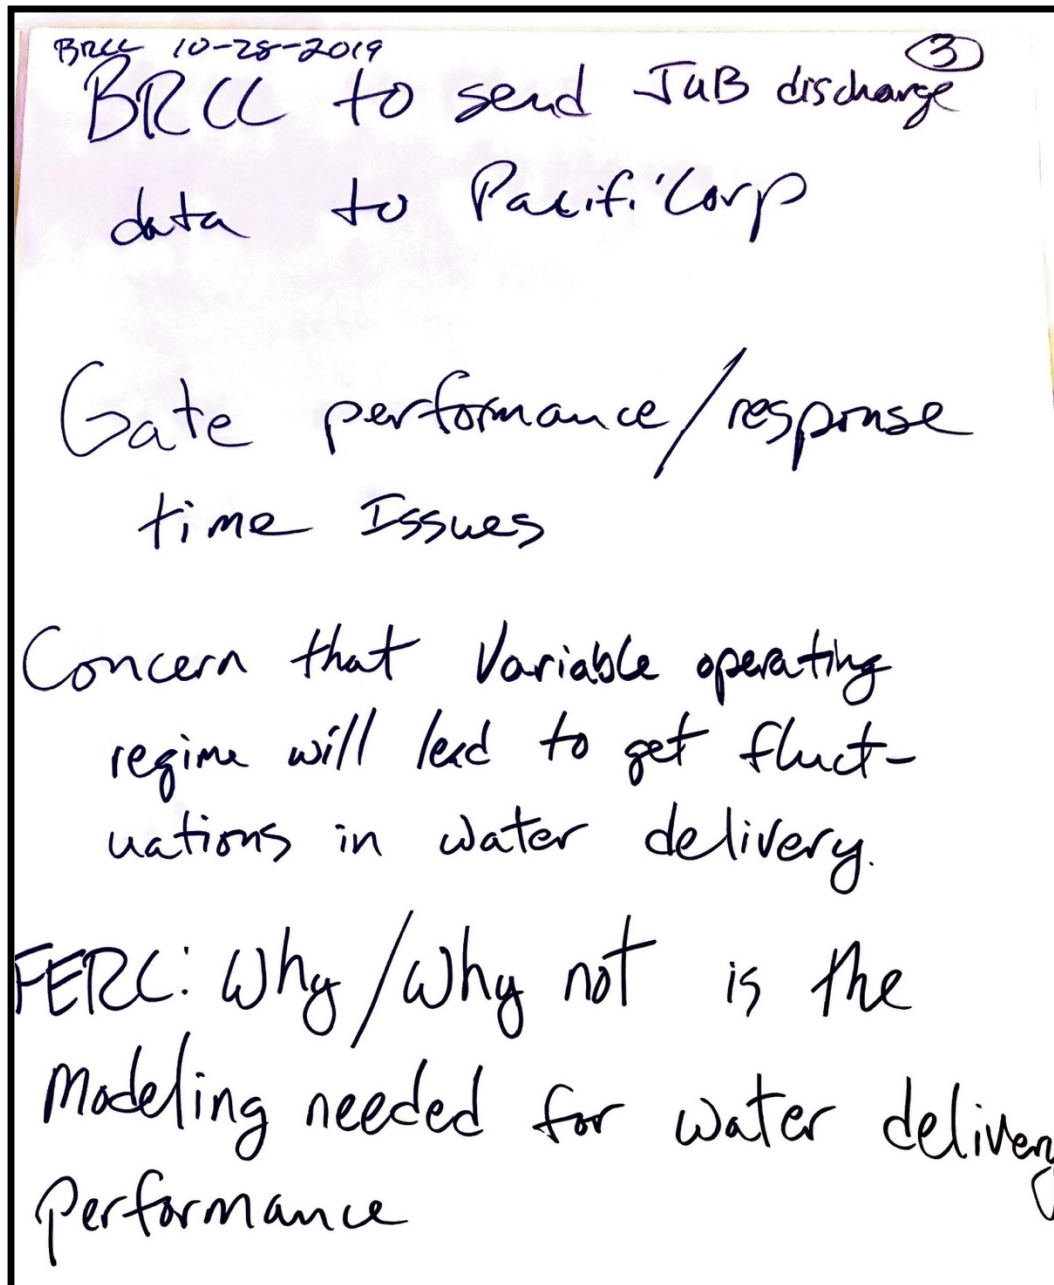 BRCC 10-28-2019 3
BRCC to send JUB discharge
data to PacifiCorp
Gate performance/response
time Issues
Concern that Variable operating
regime will lead to get fluct-
uations in water delivery.
FERC: Why/Why not is the
Modeling needed for water delivery
performance